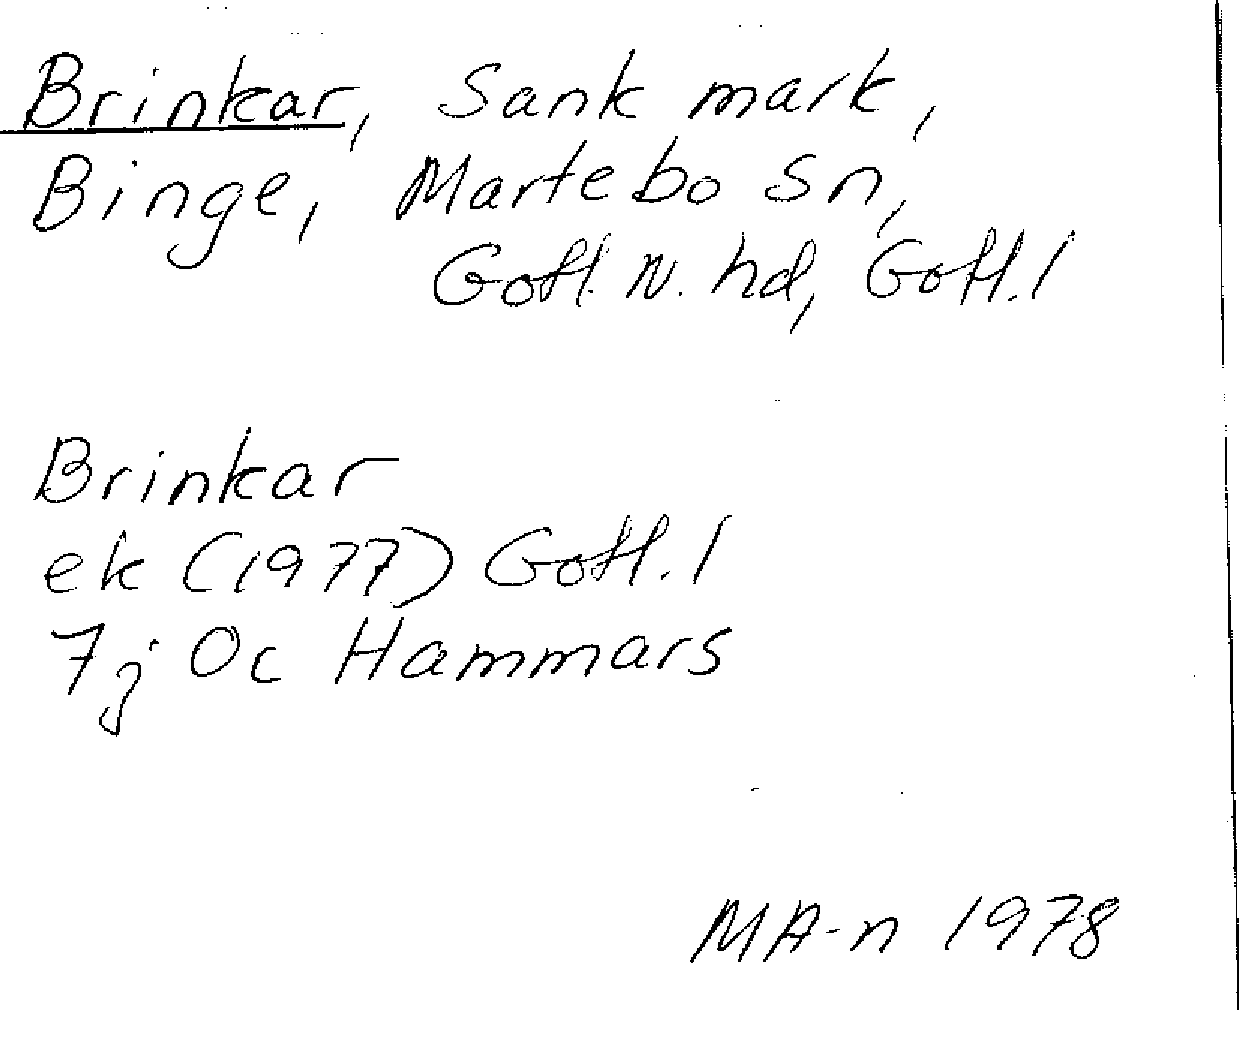 Brinkar, Sank mark,
Binge, Martebo sn,
Gotl. N. hd, Gotl. l
Brinkar
ek (1977) Gotl. l
7j Oc Hammars
MA-n 1978